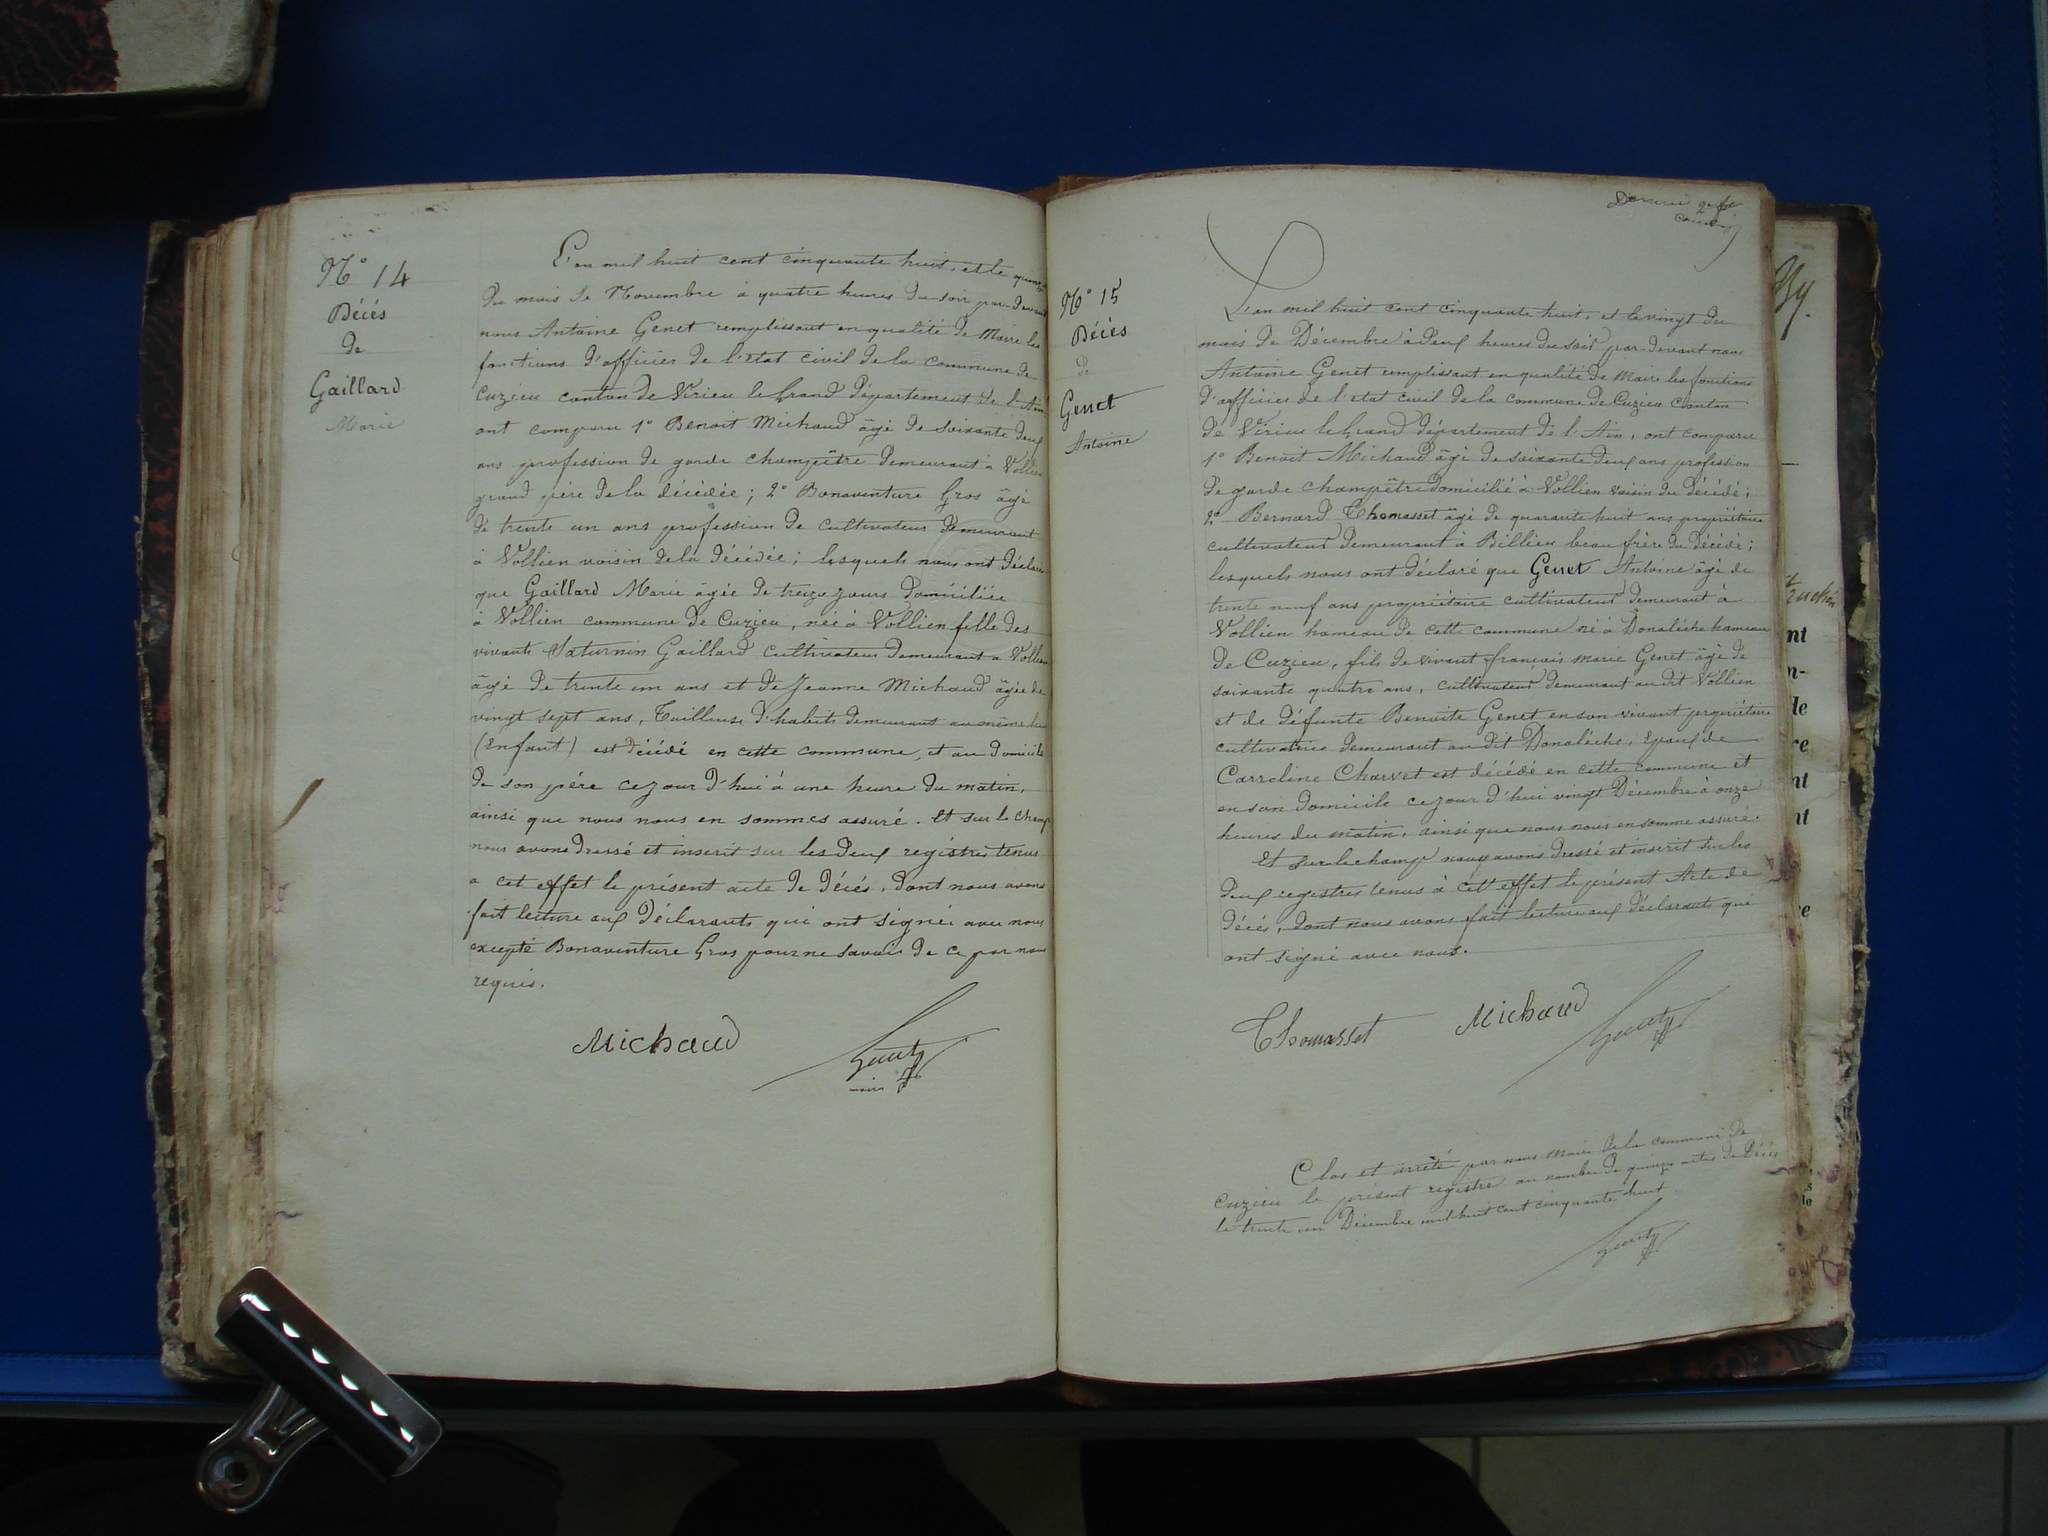 N° 14
Décés
de
Gaillard
Marie
L'an mil huit cent cinquante huit, et le quinze
du mois de Novembre à quatre heures du soir par-devant
nous Antoine Genet remplissant en qualité de Maire les
fonctions d'officier de l'état civil de la commune de
Cuzieu canton de Virieu le Grand département de l'Ain
ont comparu 1° Benoit Michaud âgé de soixante deux
ans profession de garde champêtre demeurant à Vollien
grand père de la décédée; 2° Bonaventure Gros âgé
de trente un ans profession de cultivateur demeurant
à Vollien voisin de la décédée; lesquels nous ont déclaré
que Gaillard Marie âgée de treize jours domiciliée
à Vollien commune de Cuzieu, née à Vollien fille des
vivants Saturnin Gaillard cultivateur demeurant à Vollien
âgé de trente un ans et de Jeanne Michaud âgée de
vingt sept ans, Tailleuse d'habits demeurant au même lieu
(Enfant) est décédé en cette commune, et au domicile
de son père ce jour d'hui à une heure du matin,
ainsi que nous nous en sommes assuré. Et sur le champ
nous avons dressé et inscrit sur les deux registres tenus
a cet effet le présent acte de décés, dont nous avons
fait lecture aux déclarants qui ont signé avec nous
excepté Bonaventure Gros pour ne savoir de ce par nous
requis.
Michaud Genet
maire
Dernier
N° 15
Décés
de
Genet
Antoine
L'an mil huit cent cinquante huit, et le vingt du
mois de Décembre à deux heures du soir par-devant nous
Antoine Genet remplissant en qualité de Maire les fonctions
d'officier de l'état civil de la commune de Cuzieu canton
de Virieu le Grand département de l'Ain, ont comparu
1° Benoit Michaud âgé de soixante deux ans profession
de garde champêtre domicilié à Vollien voisin du décédé;
2° Bernard Thomasset âgé de quarante huit ans propriétaire
cultivateur demeurant à Billieu beau frère du décédé;
lesquels nous ont déclaré que Genet Antoine âgé de
trente neuf ans propriétaire cultivateur demeurant à
Vollien hameau de cette commune né à Donalèche hameau
de Cuzieu, fils de vivant françois marie Genet âgé de
soixante quatre ans, cultivateur demeurant au dit Vollien
et de défunte Benoite Genet en son vivant propriétaire
cultivatrice demeurant au dit Donalèche, Epoux de
Carroline Charvet est décédé en cette commune et
en son domicile ce jour d'hui vingt Décembre à onze
heures du matin, ainsi que nous nous en somme assuré.
Et sur le champ nous avons dressé et inscrit sur les
deux registres tenus à cett effet le présent Acte de
Décés, dont nous avons fait lecture aux déclarants qui
ont signé avec nous.
Thomasset Michaud Genet
Clos et arrêté par nous Maire de la commune de
Cuzieu le présent registre au nombre de quinze actes de Décés
le trente un Décembre mil huit cent cinquante huit
Genet